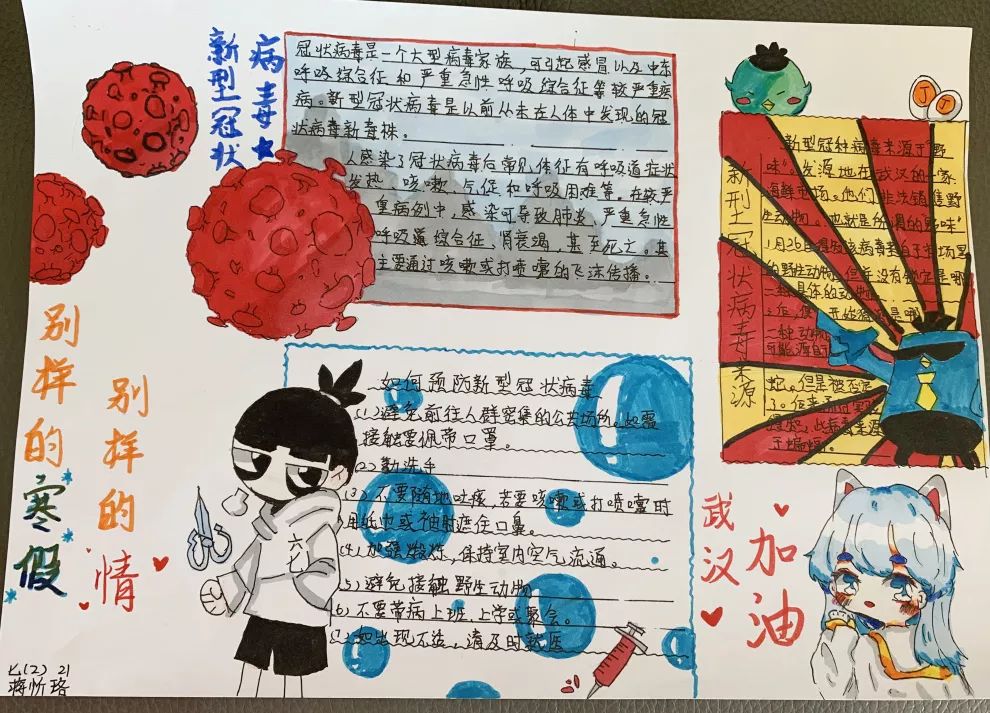 新型冠状
病毒
冠状病毒是一个大型病毒家族，可引起感冒以及中东
呼吸综合征和严重急性呼吸综合征等较严重疾
病。新型冠状病毒是以前从未在人体中发现的冠
状病毒新毒株。
人感染了冠状病毒后常见体征有呼吸道症状
发热、咳嗽、气促和呼吸困难等。在较严
重病例中，感染可导致肺炎、严重急性
呼吸道综合征、肾衰竭、甚至死亡。其
主要通过咳嗽或打喷嚏的飞沫传播。
新型冠状病毒来源
新型冠种病毒来源于“野
味”。发源地在武汉的一家
海鲜市场。他们非法销售野
生动物。也就是所谓的野味”
1月26
病毒来自于市场里
的野生动物，但并没有锁定是哪
一种具体的动物
一种动物
可能源自
蛇。但是被否定
了。
此病毒来源
于蝙蝠。
别样的寒假
别样的情
如何预防新型冠状病毒
(1)避免前往人群密集的公共场所。如需
接触要佩带口罩。
(2)勤洗手
(3)不要随地吐痰，若要咳嗽或打喷嚏时
用纸巾或袖肘遮住口鼻。
(4)加强锻炼，保持室内空气流通。
(5)避免接触野生动物
(6)不要带病上班、上学或聚会。
如出现不适，请及时就医
六
七
武汉
加油
J
J
七(2) 21
蒋忻珞